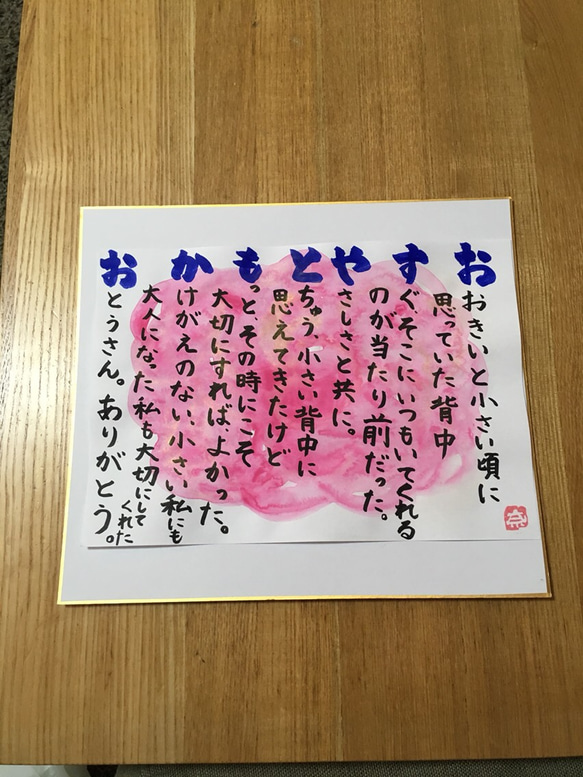 おおきいと小さい頃に
思っていた背中
すぐ、そこにいつもいてくれる
のが当たり前だった。
やさしさと共に。
とちゅう小さい背中に
思えてきたけど
もっと、その時にこそ
大切にすれば、よかった。
かけがえのない、小さい私にも
大人になった私も大切にして
くれた
おとうさん。ありがとう。
奈